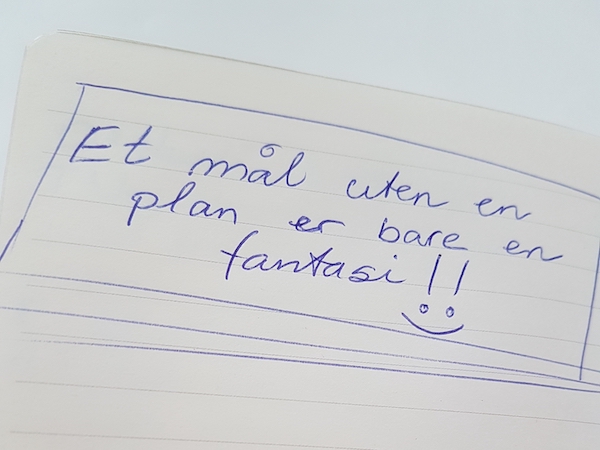 Et mål uten en
plan er bare en
fantasi!!